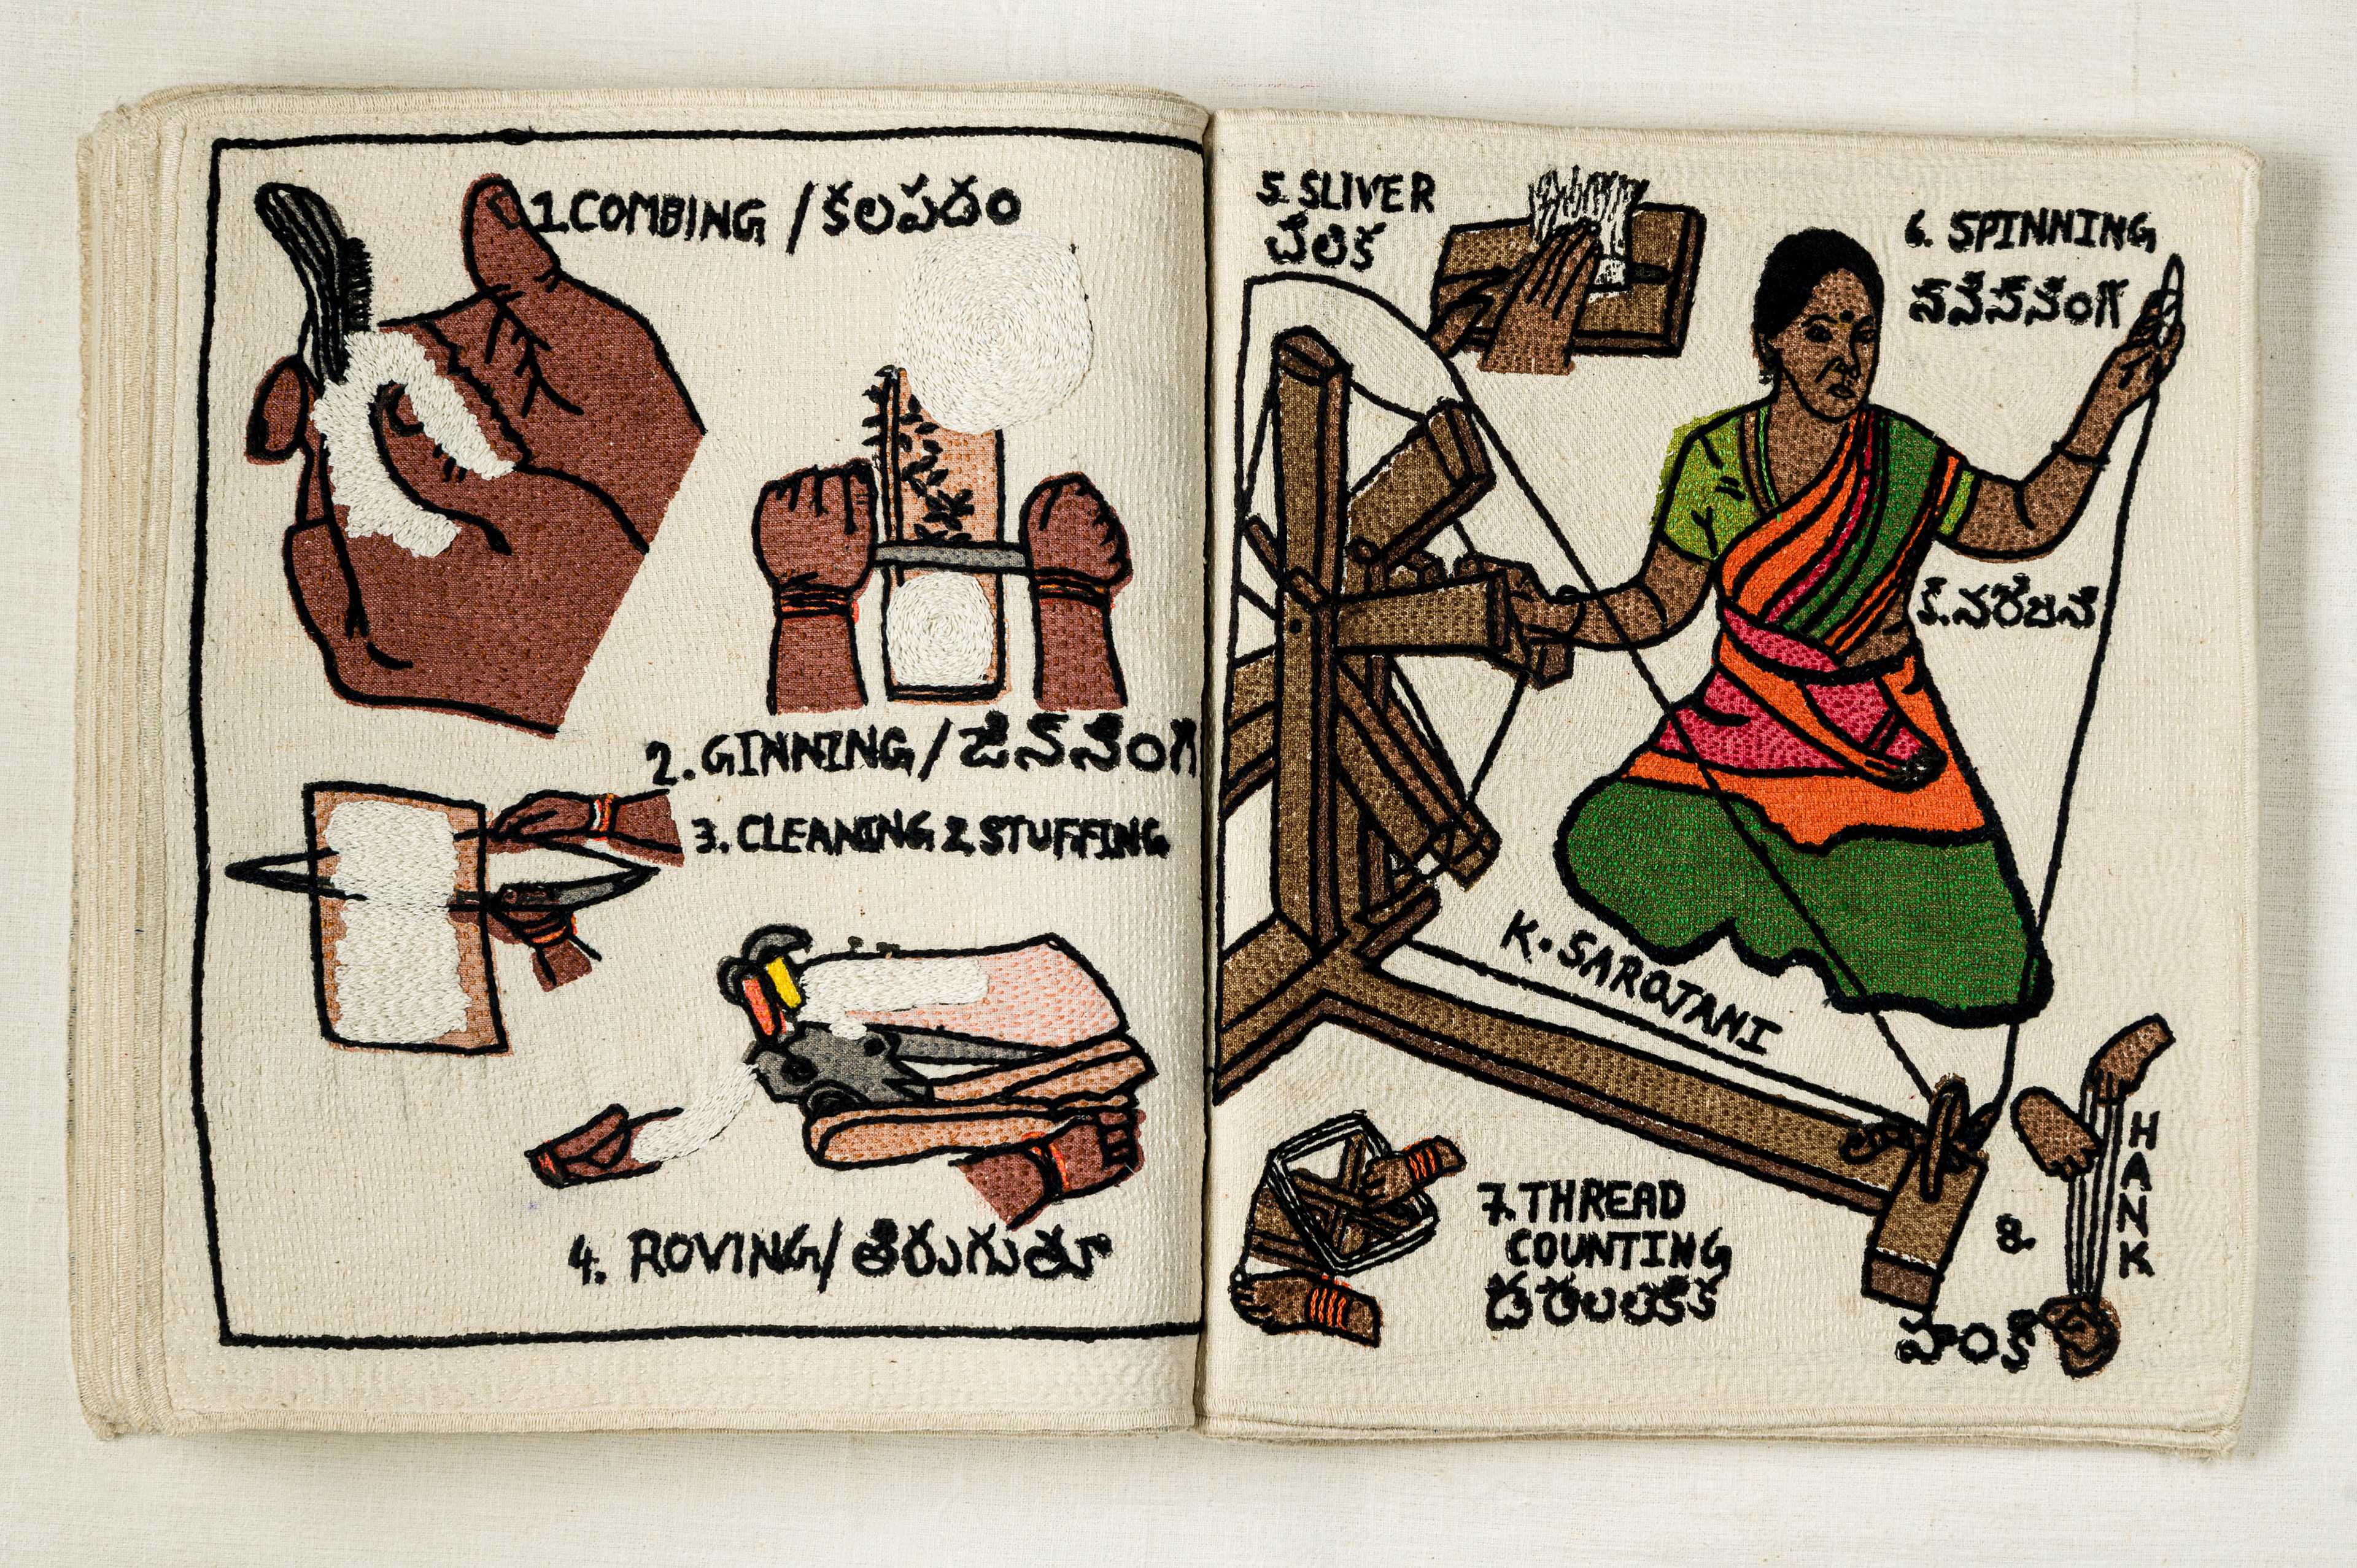 1. COMBING / కలపడం
2. GINNING / జిననింగ
3. CLEANING & STUFFING
4. ROVING / తిరుగుతూ
5. SLIVER
6. SPINNING
K. SAROJANI
7. THREAD
COUNTING
8. HANK
హంక్